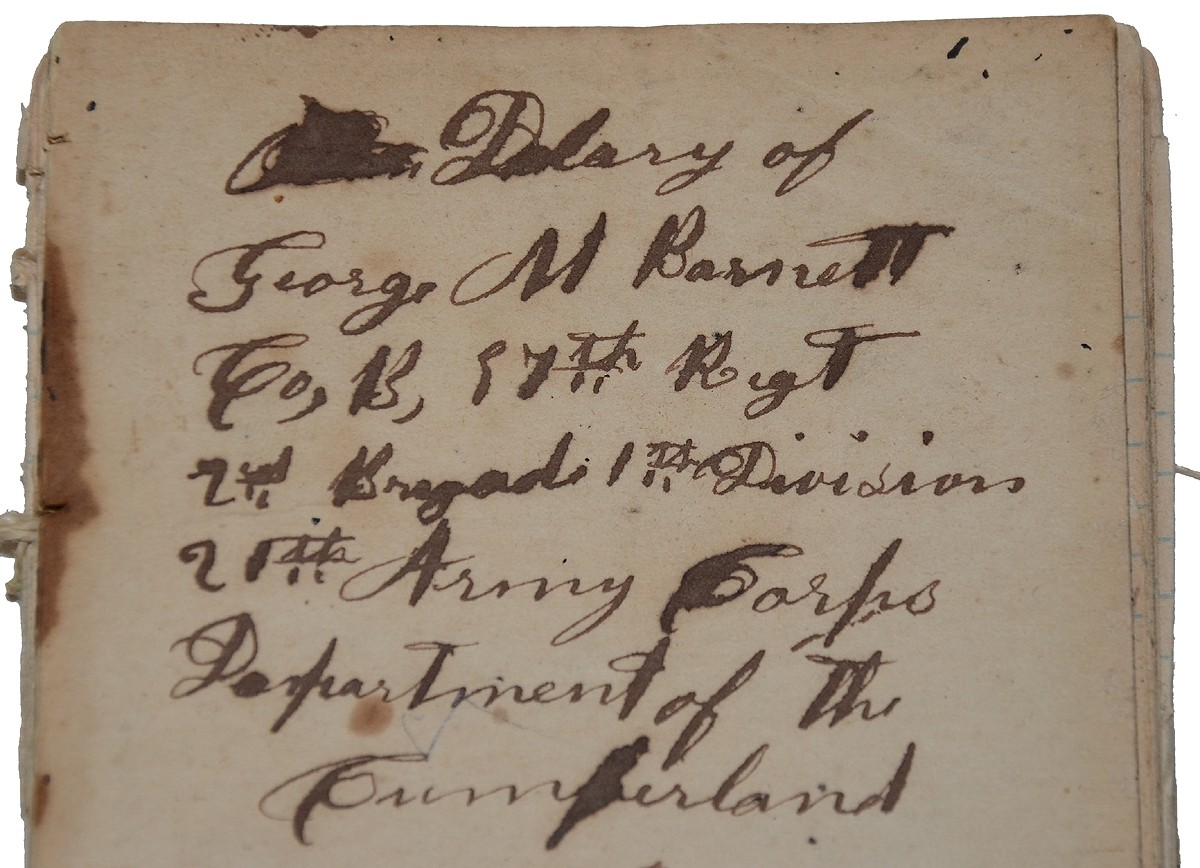 Diary of
George M Barnett
Co, B, 97th Regt
2nd Brigade 1th Division
21th Army Corps
Department of the
Cumberland